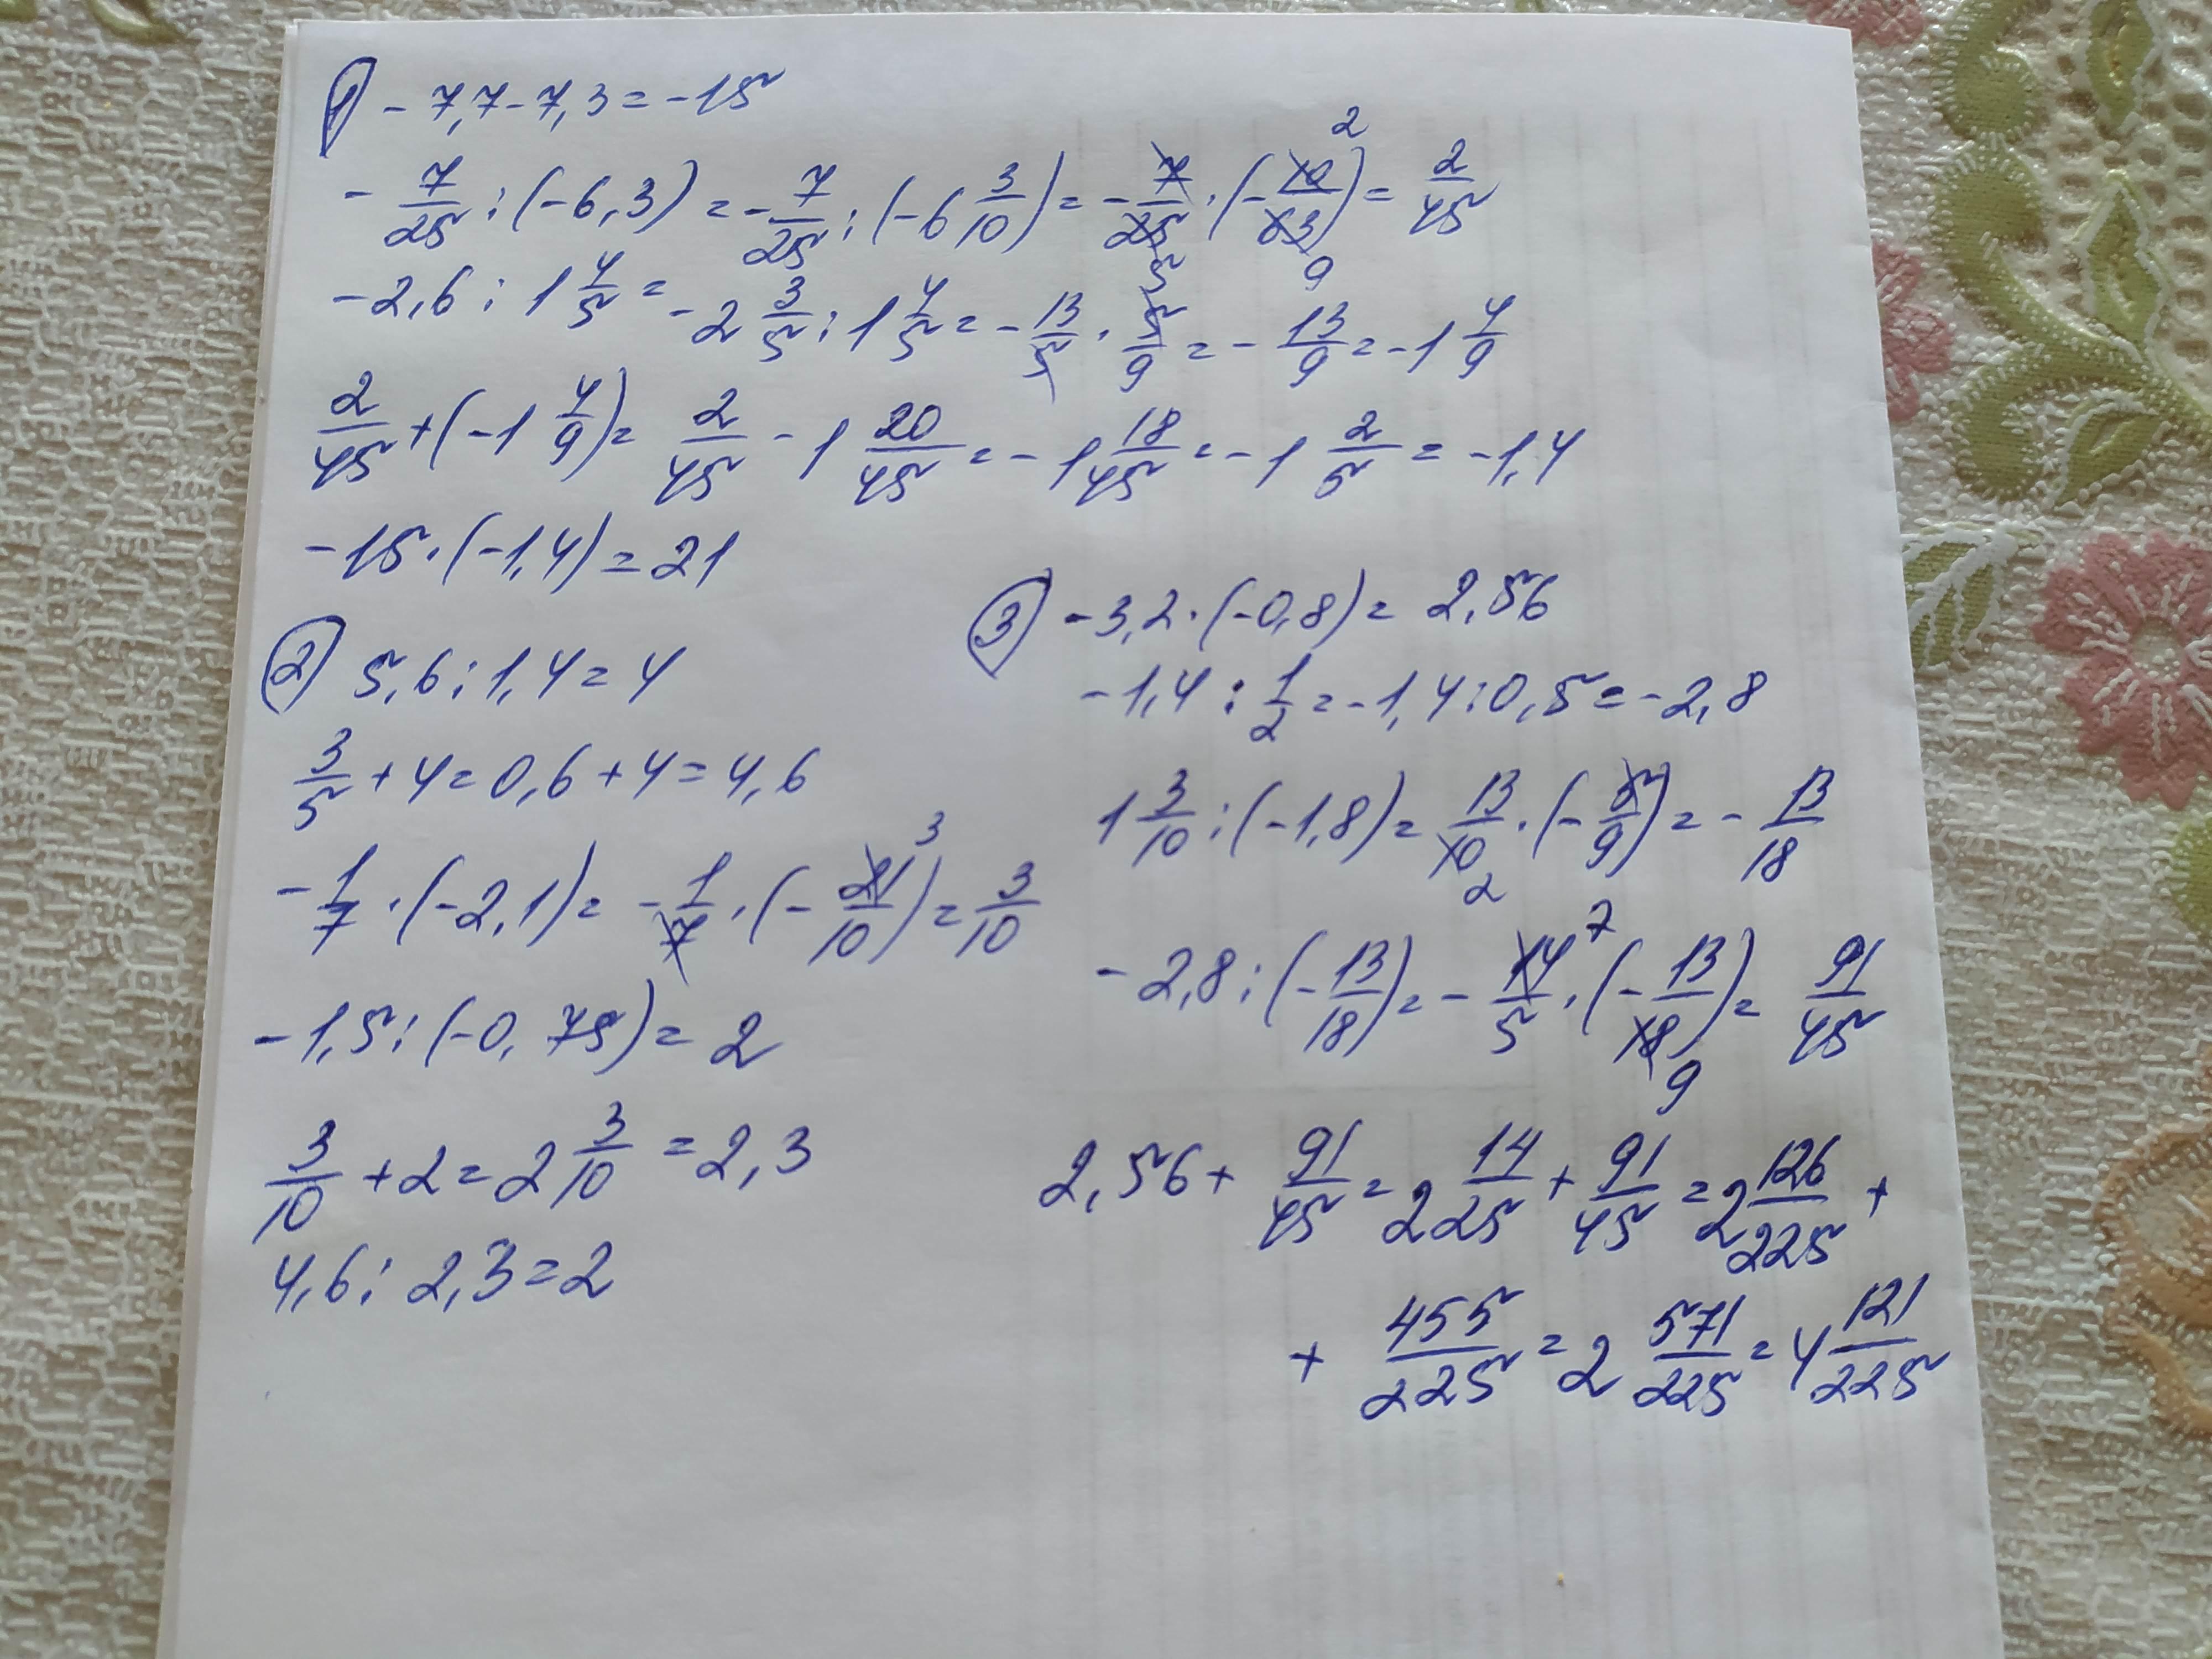 1) - 7,7 - 7,3 = -15
- 7/25 : (-6,3) = - 7/25 : (-6 3/10) = - 7/25 5 · (- 10/63) 2 9 = 2/45
-2,6 : 1 4/5 = -2 3/5 : 1 4/5 = - 13/5 · 5/9 = - 13/9 = -1 4/9
2/45 + (-1 4/9) = 2/45 - 1 20/45 = -1 18/45 = -1 2/5 = -1,4
-15 · (-1,4) = 21
2) 5,6 : 1,4 = 4
3/5 + 4 = 0,6 + 4 = 4,6
- 1/7 · (-2,1) = - 1/7 · (- 21/10) 3 = 3/10
-1,5 : (-0,75) = 2
3/10 + 2 = 2 3/10 = 2,3
4,6 : 2,3 = 2
3) -3,2 · (-0,8) = 2,56
-1,4 : 1/2 = -1,4 : 0,5 = -2,8
1 3/10 : (-1,8) = 13/10 2 · (- 5/9) = - 13/18
-2,8 : (- 13/18) = - 14/5 7 · (- 13/18) 9 = 91/45
2,56 + 91/45 = 2 14/25 + 91/45 = 2 126/225 +
+ 455/225 = 2 571/225 = 4 121/225